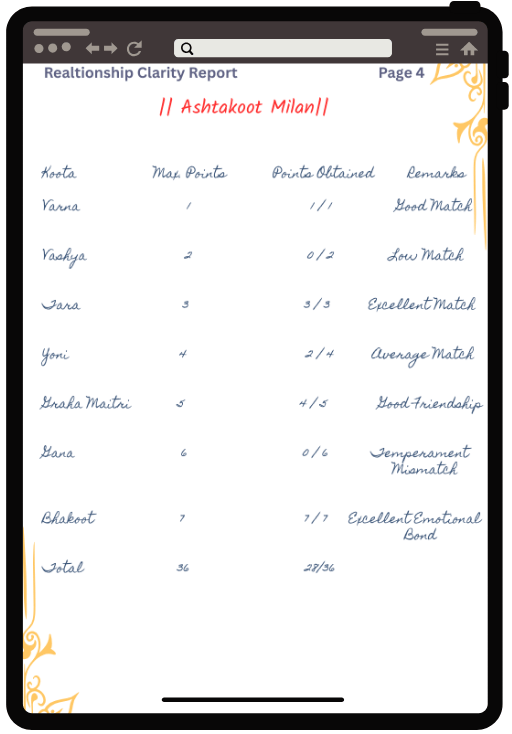 Realtionship Clarity Report Page 4
|| Ashtakoot Milan||
Koota Max Points Points Obtained Remarks
Varna 1 1 / 1 Good Match
Vashya 2 0 / 2 Low Match
Tara 3 3 / 3 Excellent Match
Yoni 4 2 / 4 Average Match
Graha Maitri 5 4 / 5 Good Friendship
Gana 6 0 / 6 Temperament
Mismatch
Bhakoot 7 7 / 7 Excellent Emotional
Bond
Total 36 28/36